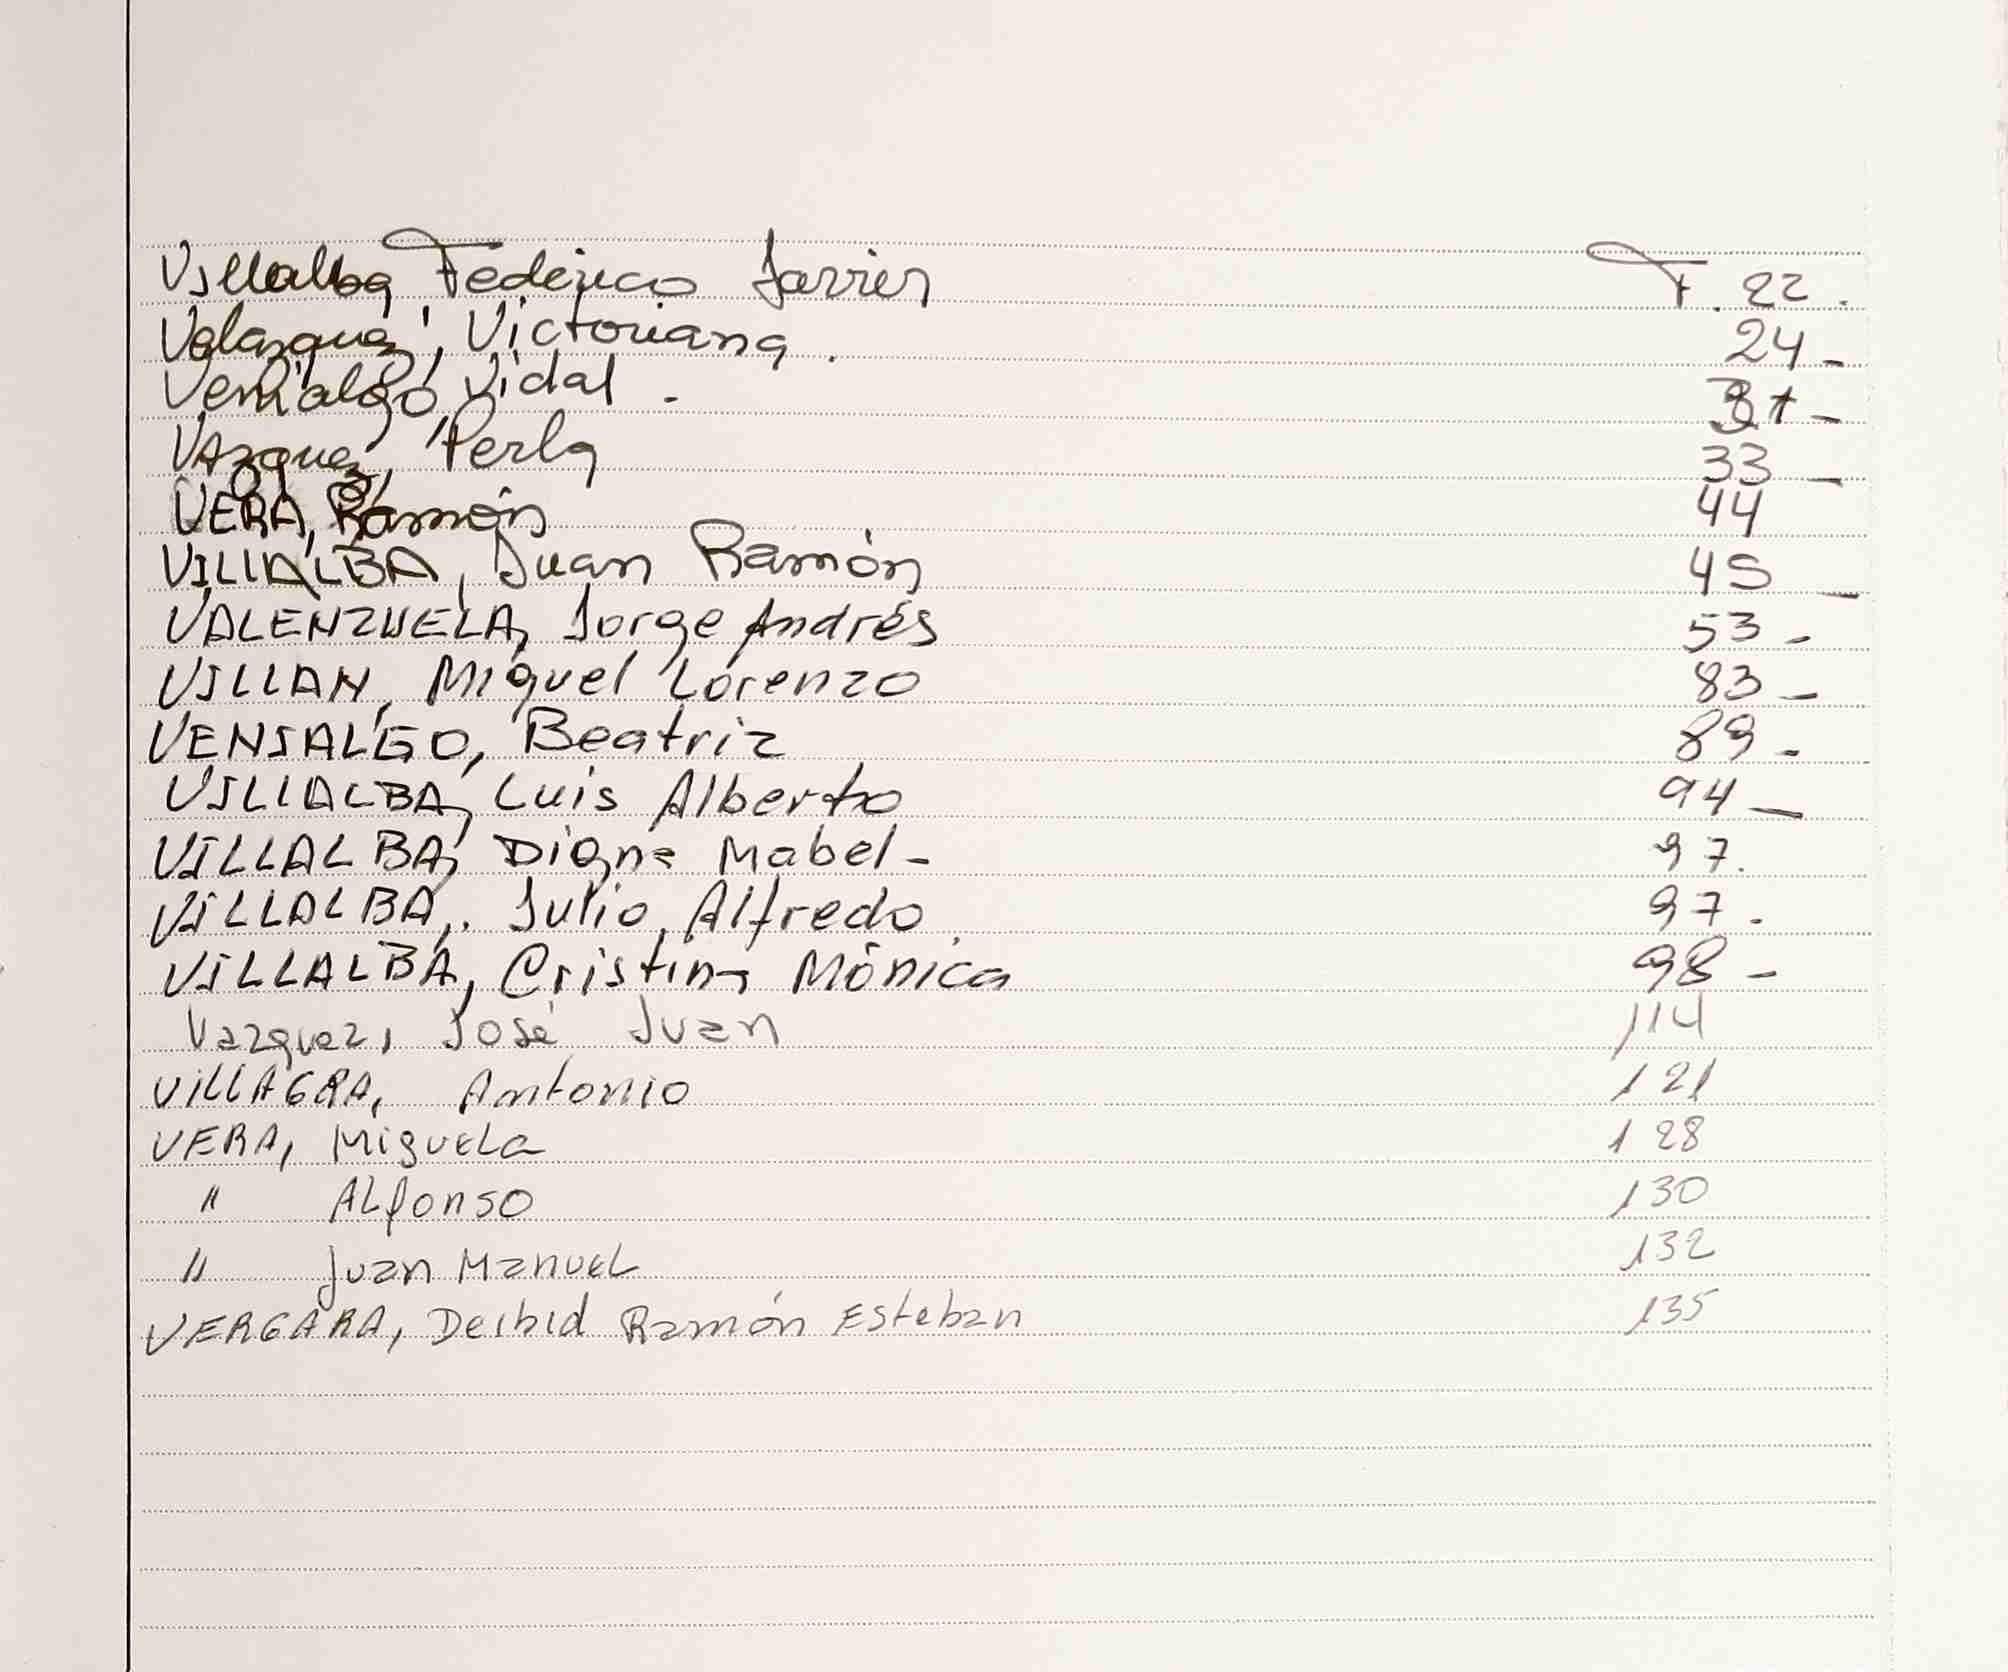 Villalba Federico Javier F. 22.
Velazquez, Victoriana. 24-
Venialgo, Vidal. -
Vázquez, Perla 33-
VERA, Ramón 44
VILLALBA, Juan Ramón 45-
VALENZUELA, Jorge Andrés 53-
VILLAN, Miguel Lorenzo 83-
VENIALGO, Beatriz 89-
VILLALBA, Luis Alberto 94-
VILLALBA, Digna Mabel- 97.
VILLALBA, Julio Alfredo. 97.
VILLALBA, Cristina Mónica 98-
Vazquez, José Juan 114
VILLAGRA, Antonio 121
VERA, Miguela 128
" ALfonso 130
" Juan ManueL 132
VERGARA, Deibid Ramón Esteban 135